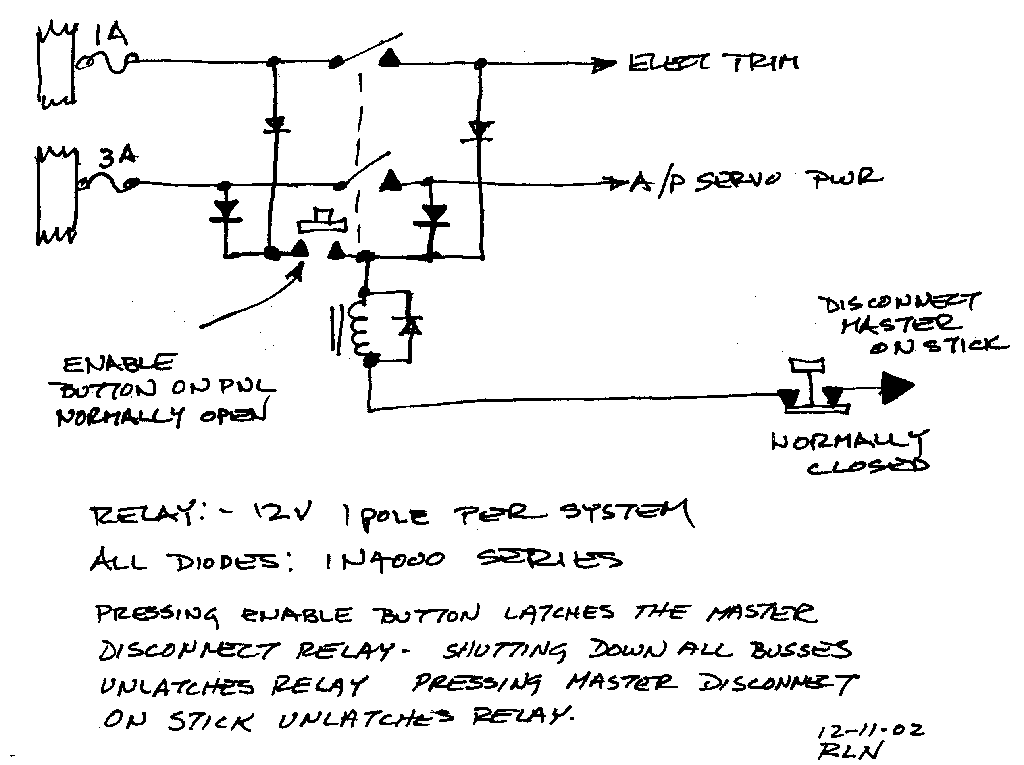 1A
ELECT TRIM
3A
A/P SERVO PWR
DISCONNECT
MASTER
ON STICK
ENABLE
BUTTON ON PNL
NORMALLY OPEN
NORMALLY
CLOSED
RELAY:- 12V 1 POLE PER SYSTEM
ALL DIODES: 1N4000 SERIES
PRESSING ENABLE BUTTON LATCHES THE MASTER
DISCONNECT RELAY- SHUTTING DOWN ALL BUSSES
UNLATCHES RELAY PRESSING MASTER DISCONNECT
ON STICK UNLATCHES RELAY.
12-11-02
RLN